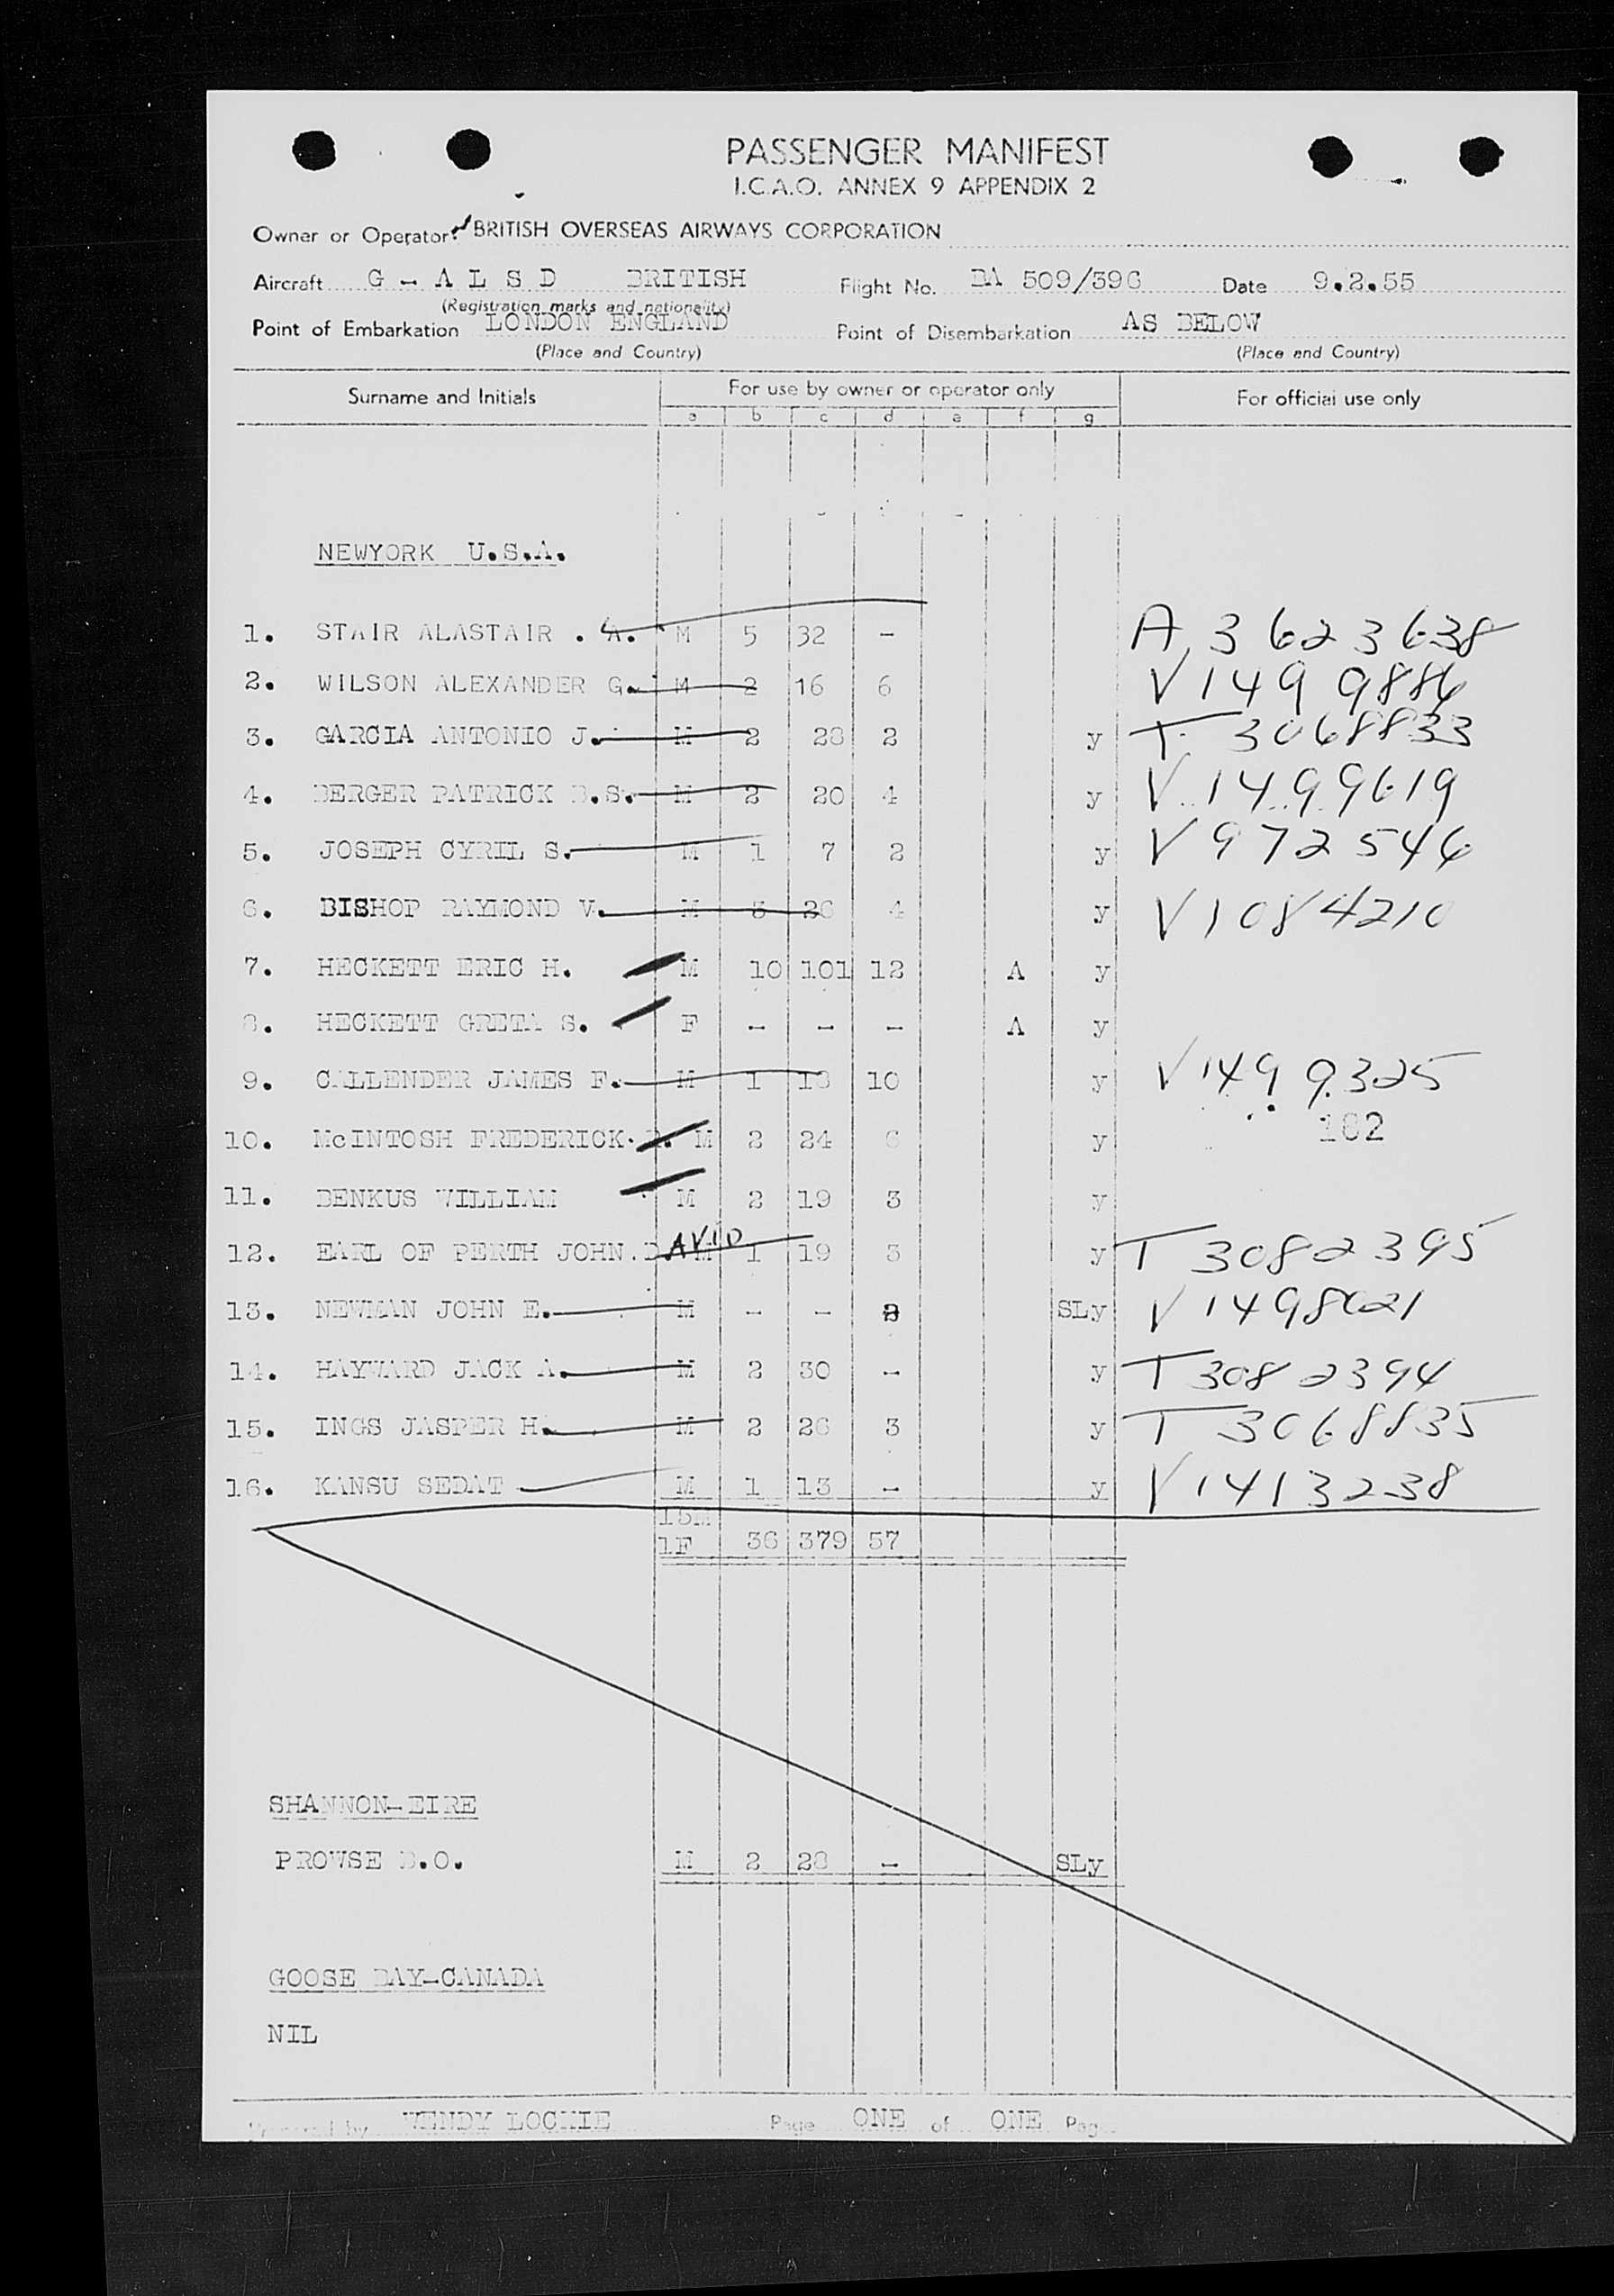 PASSENGER MANIFEST
I.C.A.O. ANNEX 9 APPENDIX 2
Owner or Operator: BRITISH OVERSEAS AIRWAYS CORPORATION
Aircraft G - A L S D BRITISH Flight No. BA 509/396 Date 9.2.55
(Registration marks and nationality)
Point of Embarkation LONDON ENGLAND Point of Disembarkation AS BELOW
(Place and Country) (Place and Country)
Surname and Initials For use by owner or operator only For official use only
a b c d e f g
NEWYORK U.S.A.
1. STAIR ALASTAIR . A. M 5 32 - A 3623638
2. WILSON ALEXANDER G. M 2 16 6 V 1499886
3. GARCIA ANTONIO J. M 2 28 2 y T 3068833
4. BERGER PATRICK B.S. M 2 20 4 y V 1499619
5. JOSEPH CYRIL S. M 1 7 2 y V 972546
6. BISHOP RAYMOND V. M 3 26 4 y V 1084210
7. HECKETT ERIC H. M 10 101 12 A y
8. HECKETT GRETA S. F - - - A y
9. CALLENDER JAMES F. M 1 18 10 y V 1499325
182
10. McINTOSH FREDERICK. R. M 2 24 6 y
11. BENKUS WILLIAM M 2 19 3 y
12. EARL OF PERTH JOHN.DAVID M 1 19 3 y T 3082395
13. NEWMAN JOHN E. M - - 2 SLy V 1498021
14. HAYWARD JACK A. M 2 30 - y T 3082394
15. INGS JASPER H. M 2 26 3 y T 3068835
16. KANSU SEDAT M 1 13 - y V 1413238
15M
1F 36 379 57
SHANNON-EIRE
PROWSE B.O. M 2 28 - SLy
GOOSE BAY-CANADA
NIL
Prepared by WENDY LOCKIE Page ONE of ONE Pag